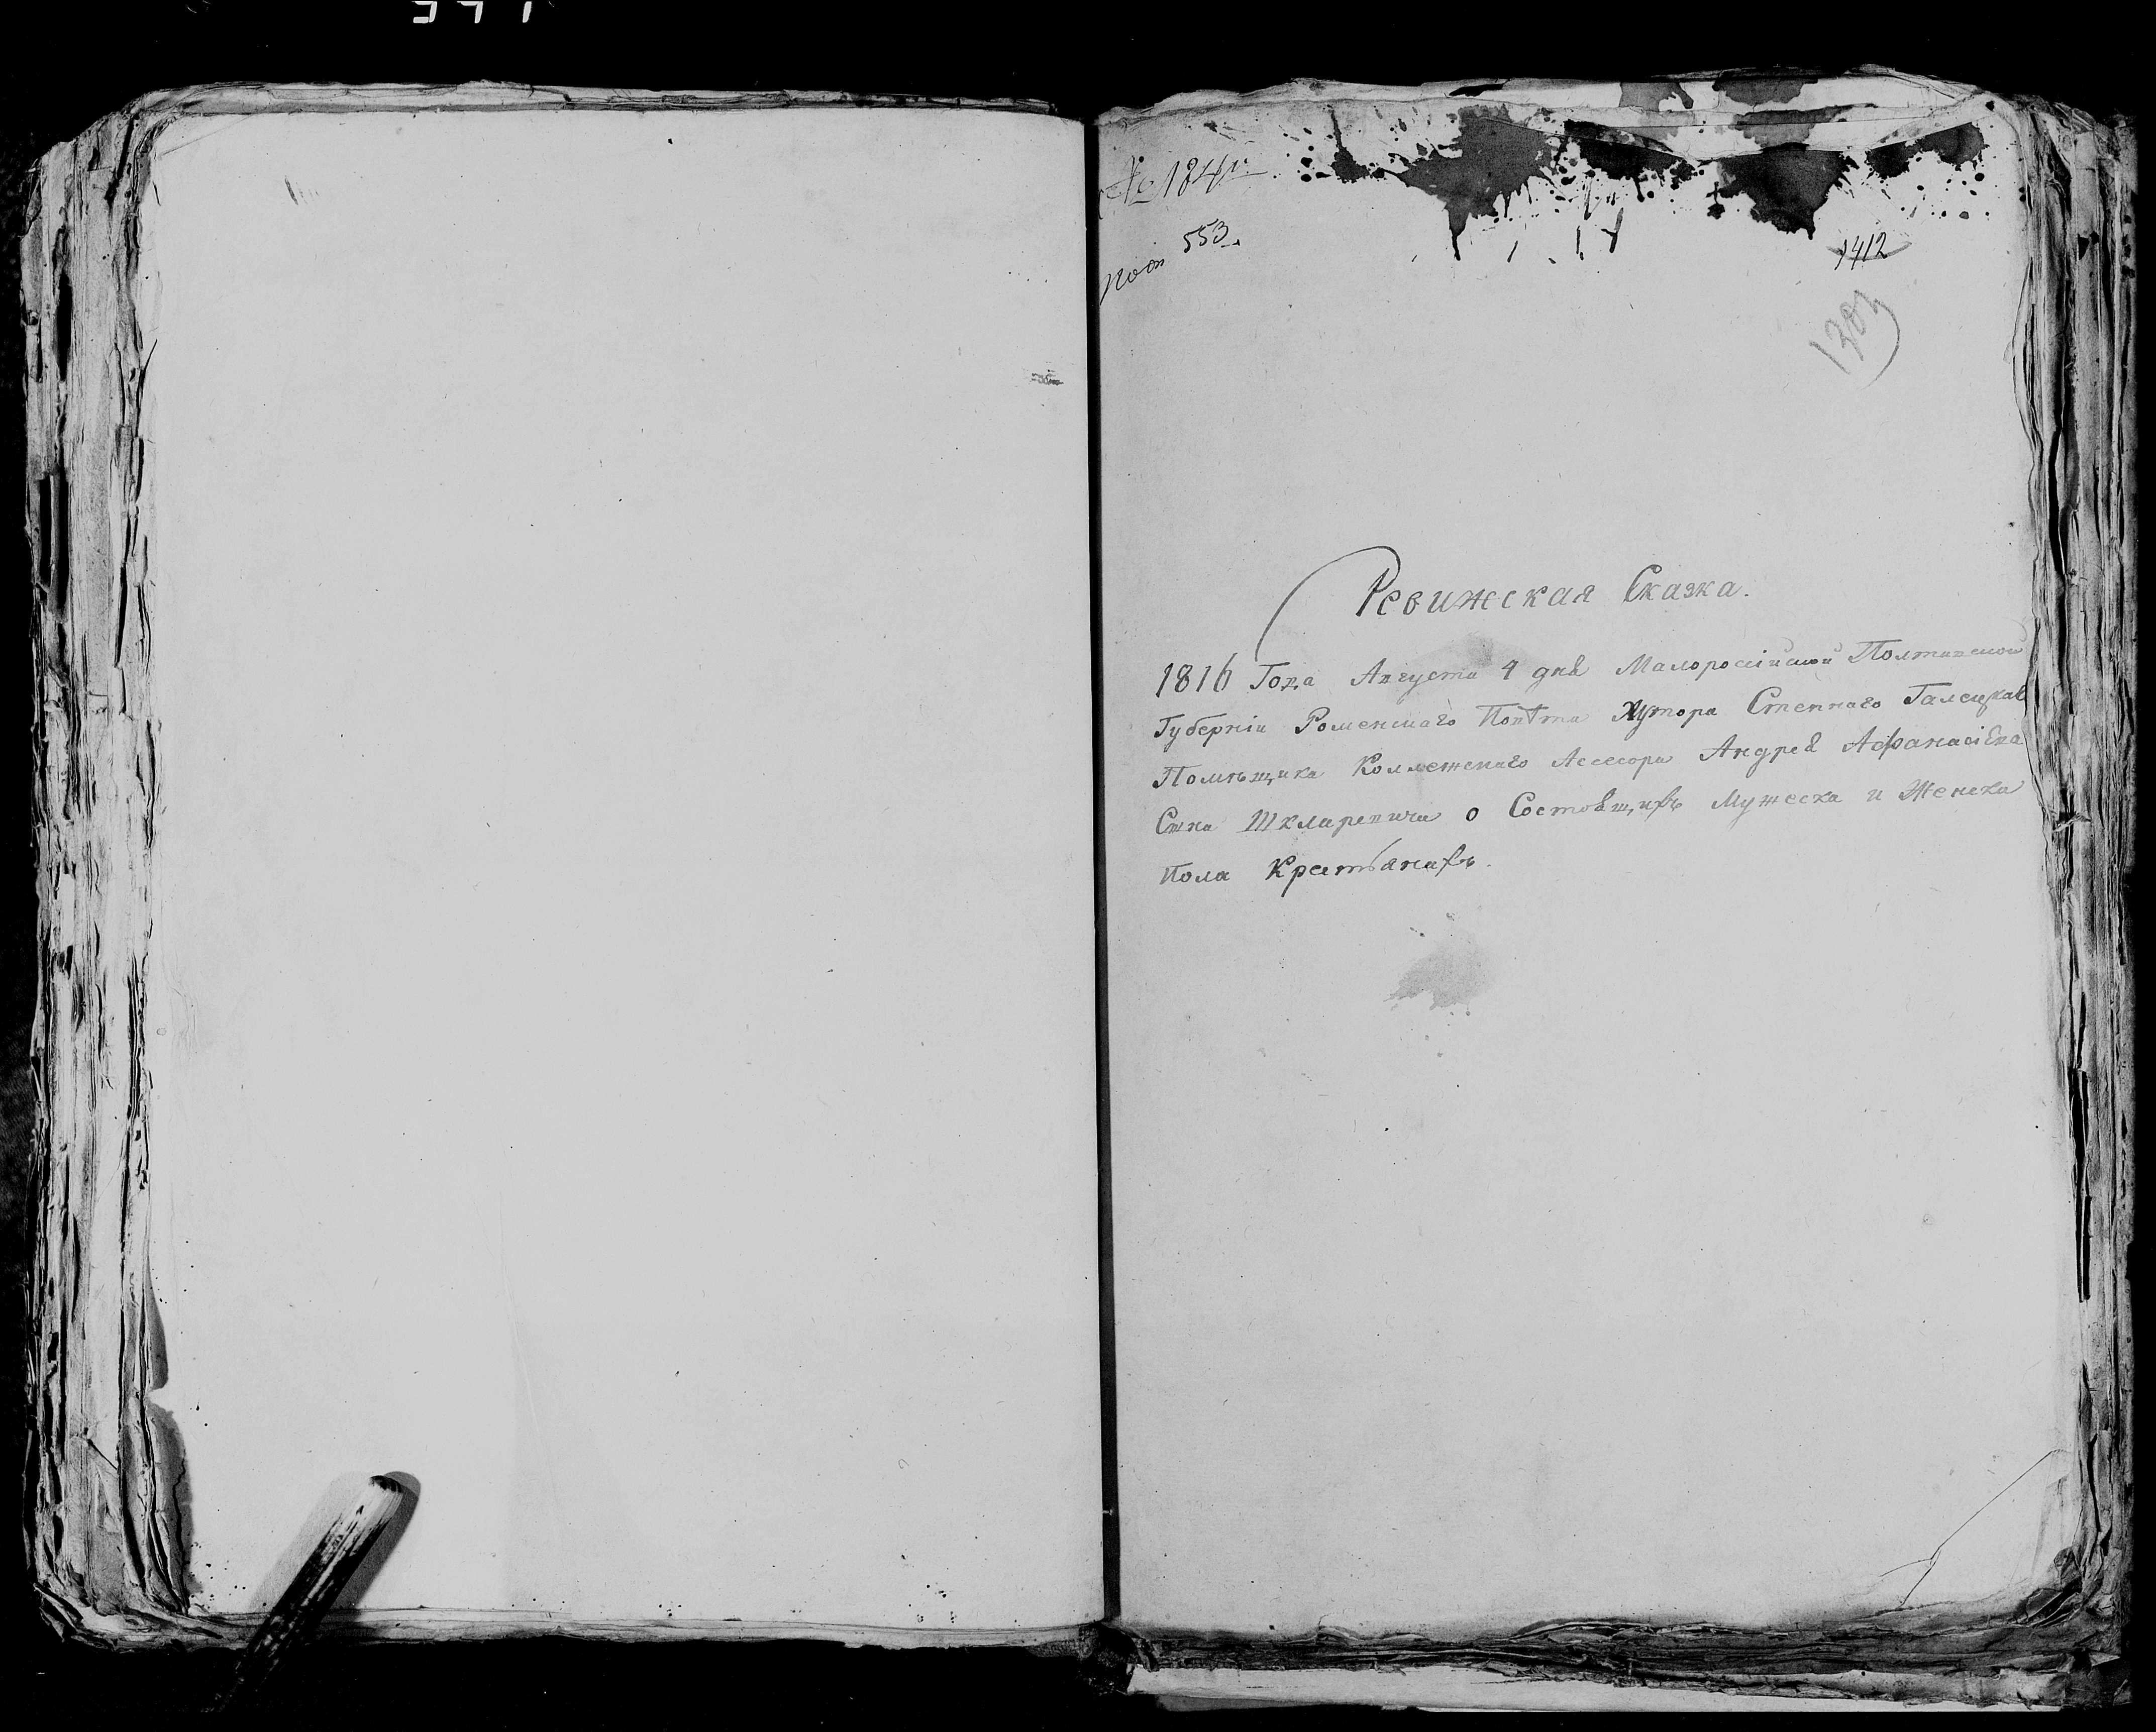 № 184
553.
1412
Ревижская Сказка.
1816 Года Августа 4 дня Малороссійской Полтавской
Губерніи Роменскаго Повѣта Хутора Степнаго Галецкаго
Помѣщика Коллежскаго Асесора Андрея Афанасіева
Сына Шкляревича о Состоящихъ Мужеска и Женска
Пола Крестьянахъ.